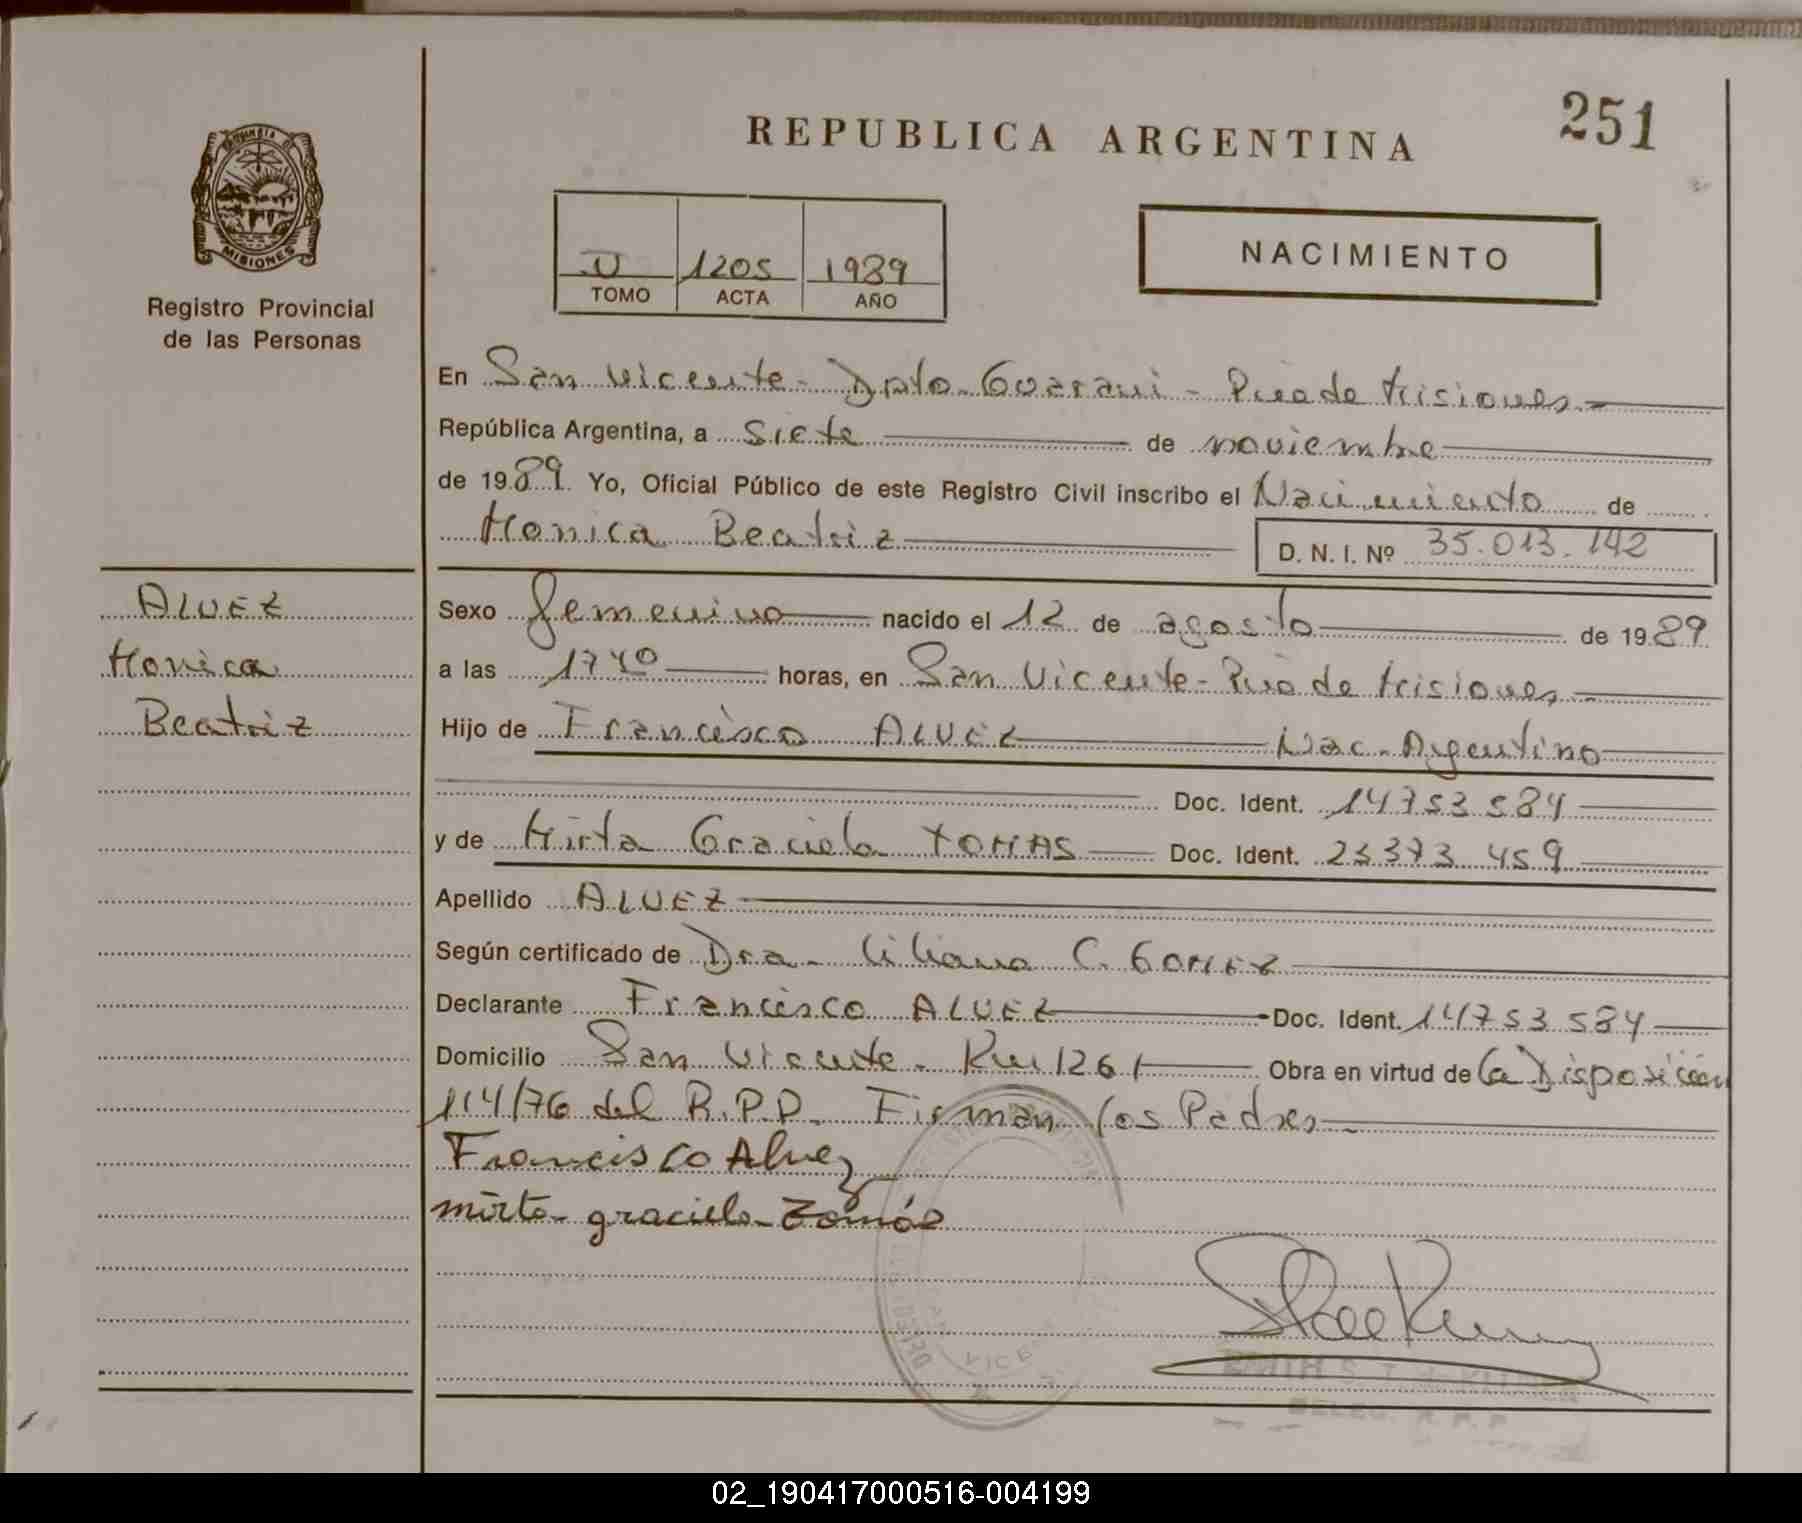 251
REPUBLICA ARGENTINA
PROVINCIA DE MISIONES
Registro Provincial
de las Personas
U 1205 1989
TOMO ACTA AÑO
NACIMIENTO
En San Vicente - Dpto. Guarani - Pcia de Misiones.
República Argentina, a siete de noviembre
de 1989. Yo, Oficial Público de este Registro Civil inscribo el Nacimiento de
Monica Beatriz D. N. I. Nº 35.013.142
ALVEZ
Monica
Beatriz
Sexo femenino nacido el 12 de agosto de 1989
a las 17 40 horas, en San Vicente - Pcia de Misiones
Hijo de Francisco ALVEZ Nac. Argentino
Doc. Ident. 14753584
y de Mirta Graciela TOMAS Doc. Ident. 23373459
Apellido ALVEZ
Según certificado de Dra. Liliana C. GOMEZ
Declarante Francisco ALVEZ Doc. Ident. 14753584
Domicilio San Vicente - Km 1261 Obra en virtud de la Disposición
114/76 del R.P.P. Firman los Padres
Francisco Alvez
mirta graciela Tomás
DELEG. R. P. P.
02_190417000516-004199